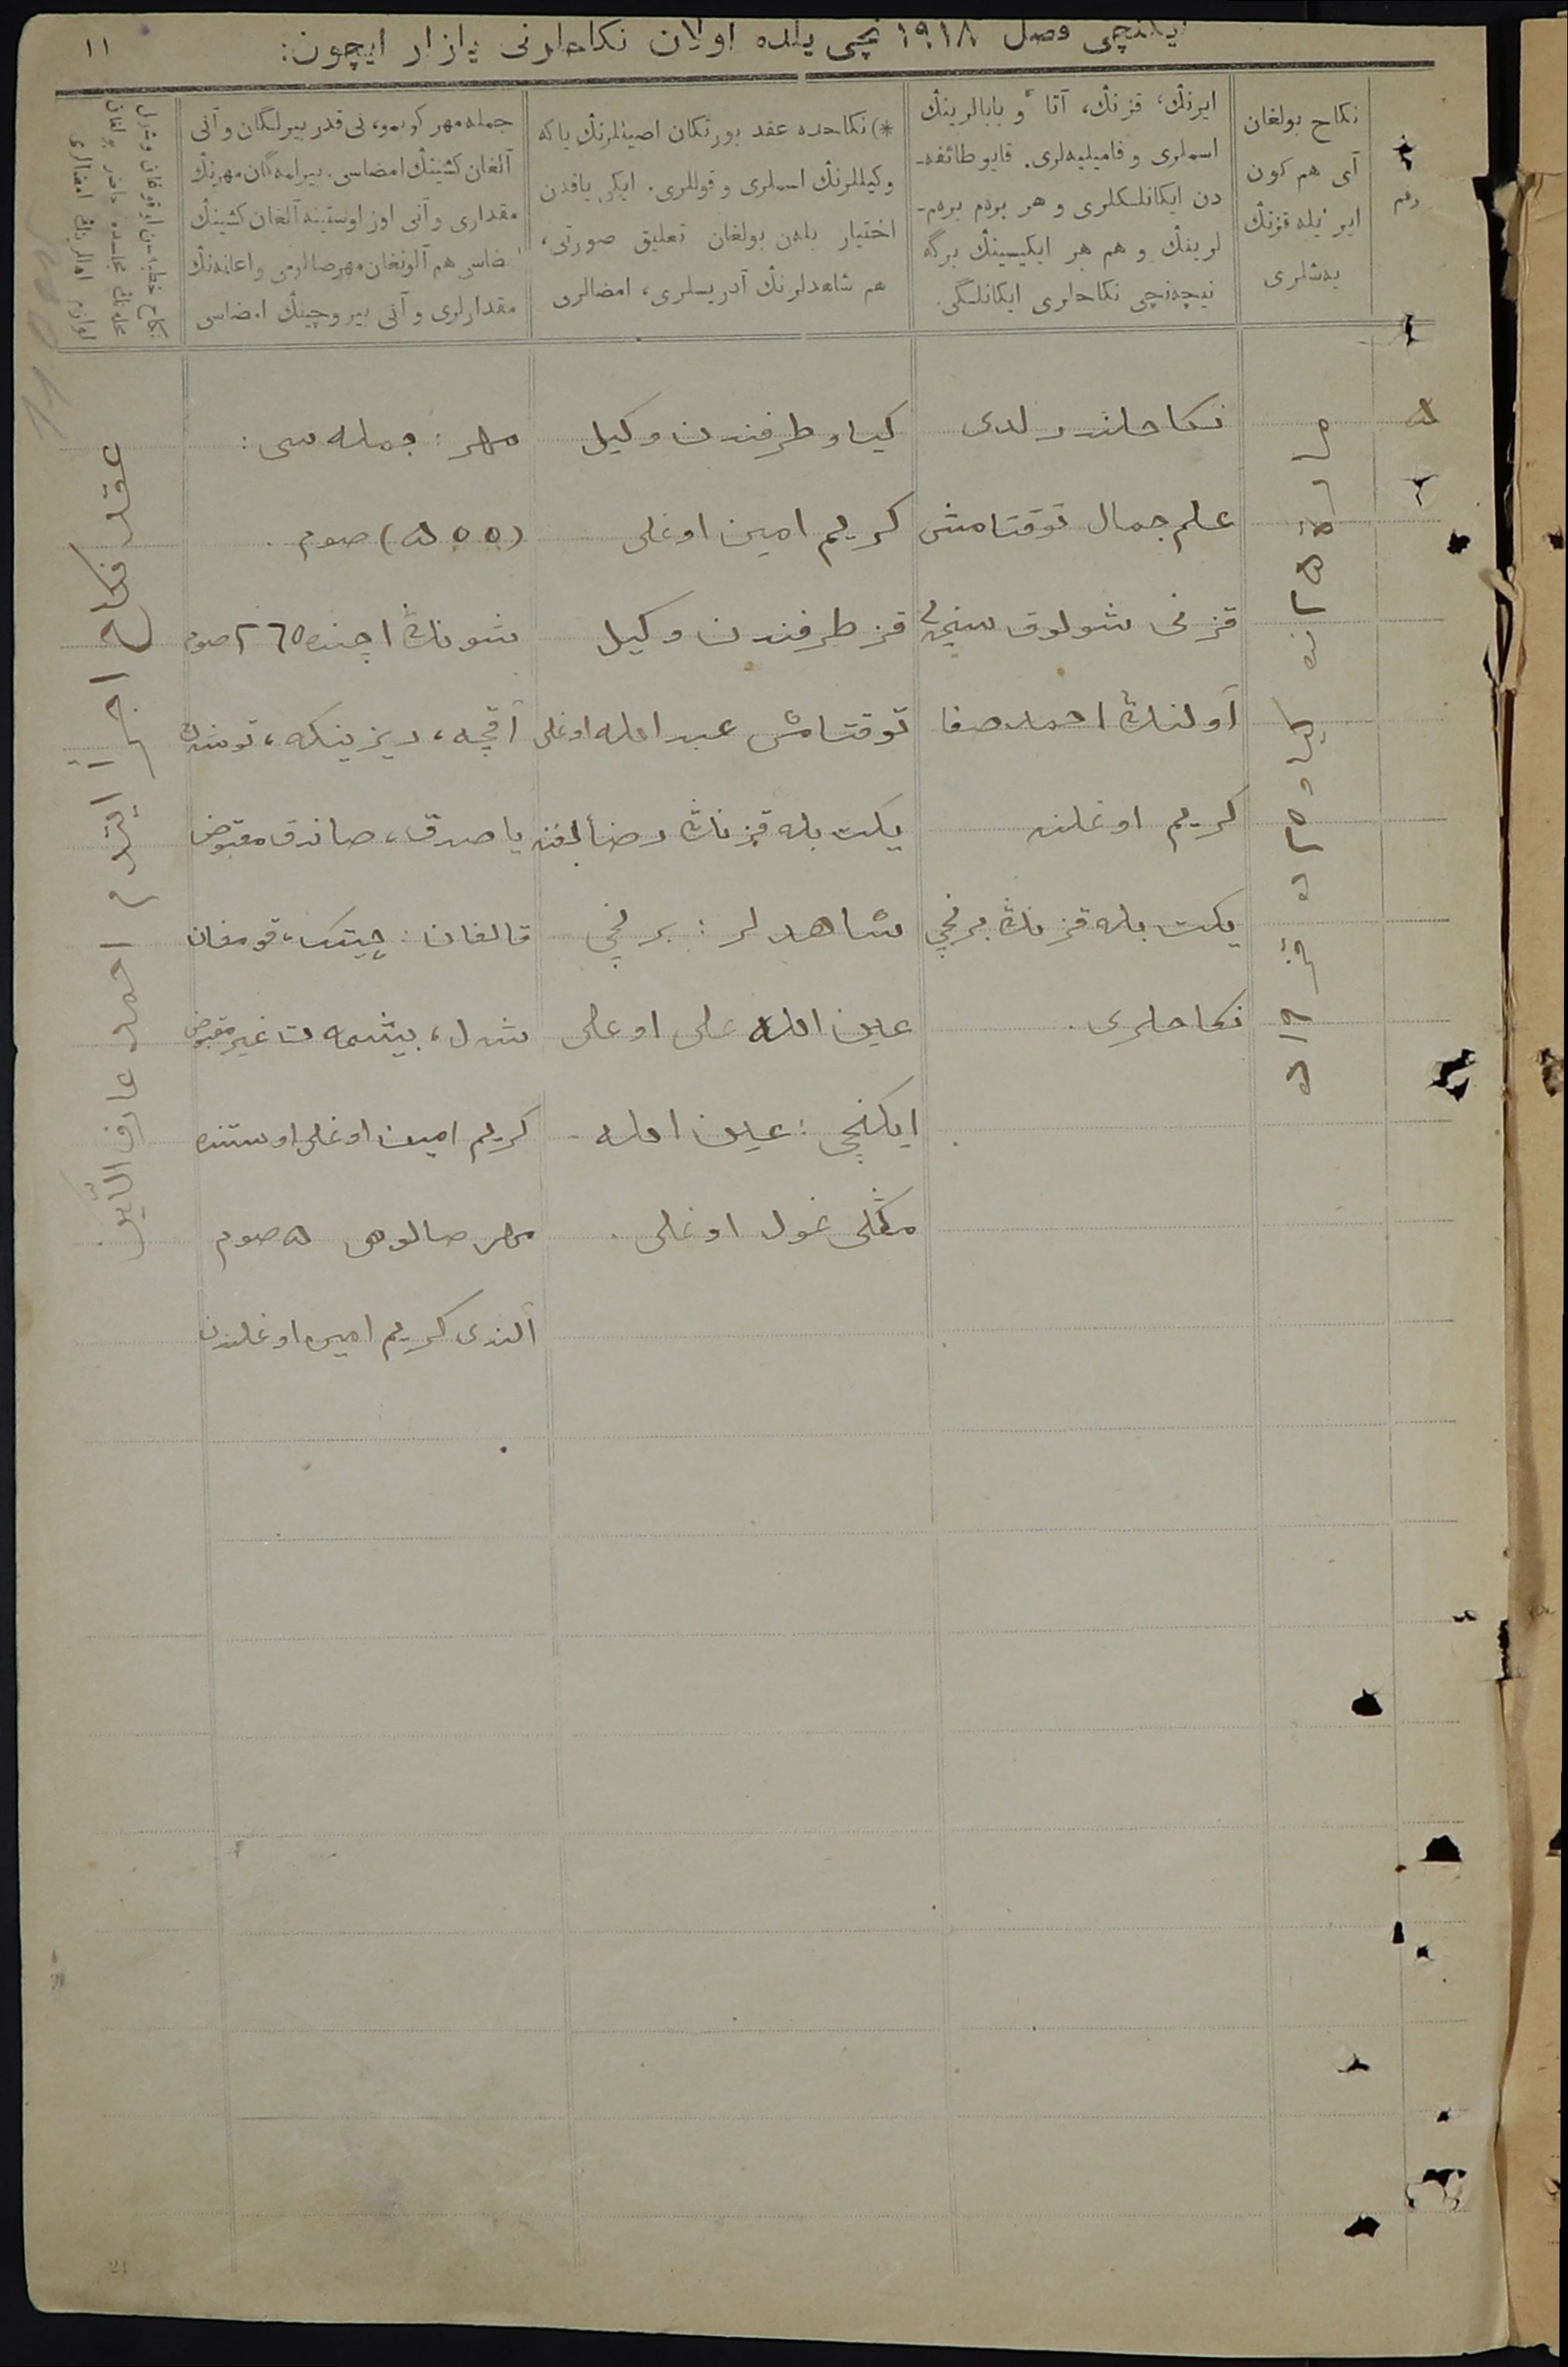 ايكنچی فصل ١٩١٨ نچی يلده اولان نكاحلرنی يازار ايچون:
١١
رقم
نكاح بولغان
آی هم كون
اير ايله قزنڭ
يه‌شلری
ايرنڭ، قزنڭ، آتا و بابالرينڭ
اسملری و فاميليه‌لری. قايو طائفه‌-
دن ايكانلكلری و هر برم برم-
لرينڭ و هم هر ايكيسينڭ برگه
نيچه‌نچی نكاحلری ايكانلگی.
*) نكاحده عقد يورتكان اصيللرنڭ ياكه
وكيللرنڭ اسملری و قوللری. ايكی ياقدن
اختيار بله‌ن بولغان تعليق صورتی،
هم شاهدلرنڭ آدريسلری، امضالری
جمله مهر كوبمو، نی قدر بيرلگان و آنی
آلغان كشينڭ امضاسی. بيرلمه‌گان مهرنڭ
مقداری و آنی اوز اوستينه آلغان كشينڭ
امضاسی هم آلونغان مهر صالومی و اعانه‌نڭ
مقدارلری و آنی بيروچينڭ امضاسی
٥
كياو ٢٥ ده قز ١٩ ده
نكاحلندرلدی
علم جمال توقتامش
قزنی شولوق سينچی
آولنڭ احمد صفا
كريم اوغلنه
يكت بله قزنڭ برنچی
نكاحلری.
كياو طرفندن وكيل
كريم امين اوغلی
قز طرفندن وكيل
توقتامش عبد الله اوغلی
يكت بله قزنڭ رضالغنه
شاهدلر: برنچی
عين الله علی اوغلی
ايكنچی: عين الله
مڭلی غول اوغلی.
مهر: جمله سی:
(٥٠٠) صوم.
شونڭ اچنده ٢٦٥ صوم
آقچه، ديزينكه، توشك
ياصدق، صاندق مقبوض
قالغان: چيتك، قومغان
شال، بيشمه‌ت غير مقبوض
كريم امين اوغلی اوستنده
مهر صالومی ٥ صوم
آلندی كريم امين اوغلندن
عقد نكاح اجرا ايتدم احمد عارف